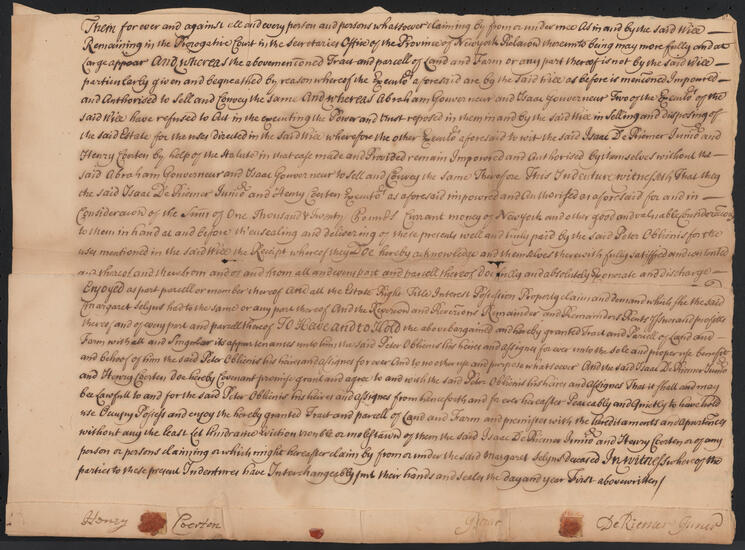 Them for ever and against all and every person and persons whatsoever claiming by from or under mee As in and by the said Will
Remaining in the Prerogative Court in the Secretaries Office of the Province of New york Relation thereunto being may more fully and at
Large appear And whereas the abovementioned Tract and parcell of Land and Farm or any part thereof is not by the said Will
particularly given and bequeathed by reason whereof the Execut.rs aforesaid are by the said Will as before is mentioned Impowred
and Authorised to Sell and Convey the same And whereas Abraham Gouverneur and Isaac Gouverneur Two of the Execut.rs of the
said Will have refused to Act in the executing the Power and trust reposed in them in and by the said Will in Selling and disposing of
the said Estate for the uses directed in the said Will wherefore the other Execut.rs aforesaid to wit the said Isaac De Riemer Jun.r and
Henry Coerten by help of the Statute in that case made and Provided remain Impowred and Authorised by themselves without the
said Abraham Gouverneur and Isaac Gouverneur to Sell and Convey the same Therefore This Indenture witnesseth That they
the said Isaac De Riemer Jun.r and Henry Coerten Execut.rs as aforesaid impowred and Authorised as aforesaid for and in
Consideration of the Sum of One Thousand & twenty Pounds Currant money of New york and other good and valuable Consideracons
to them in hand at and before the ensealing and delivering of these presents well and truly paid by the said Peter Oblienis for the
uses mentioned in the said Will the Receipt whereof they Doe hereby acknowledge and themselves therewith fully satisfied and contented
and thereof and therefrom and of and from all and every part and parcell thereof doe fully and absolutely Exonerate and discharge
Enjoyed as part parcell or member thereof And all the Estate Right Title Interest Possession Property claim and demand which she the said
Margaret Selyns had to the same or any part thereof And the Reversion and Reversions Remainder and Remainders Rents Issues and profits
thereof and of every part and parcell thereof To Have and to Hold the above bargained and hereby granted Tract and Parcell of Land and
Farm with all and singular its appurtenances unto him the said Peter Oblienis his heires and assignes for ever unto the sole and proper use benefit
and behoof of him the said Peter Oblienis his heires and assignes for ever And to no other use and purpose whatsoever And the said Isaac De Riemer Jun.r
and Henry Coerten doe hereby Covenant promise grant and agree to and with the said Peter Oblienis his heires and Assignes That it shall and may
bee Lawfull to and for the said Peter Oblienis his heires and assignes from henceforth and for ever hereafter Peaceably and Quietly to have hold
use Occupy Possess and enjoy the hereby granted Tract and parcell of Land and Farm and premisses with the hereditaments and appurtenances
without any the least Let hindrance Eviction trouble or molestation of them the said Isaac De Riemer Jun.r and Henry Coerten or of any
person or persons claiming or which might hereafter claim by from or under the said Margaret Selyns deceased In witness whereof the
parties to these present Indentures have Interchangeably put their hands and seales the day and year First above written
Henry Coerten De Riemer Junior